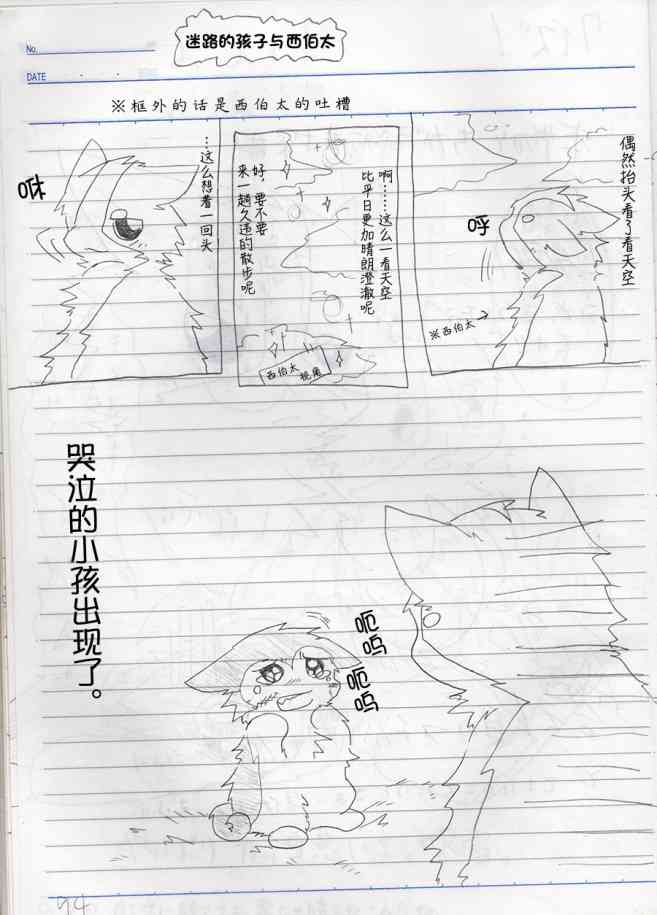 No.
DATE
迷路的孩子与西伯太
※框外的话是西伯太的吐槽
偶然抬头看了看天空
呼
※西伯太→
啊……这么一看天空
比平日更加晴朗澄澈呢
好，要不要
来一趟久违的散步呢
西伯太
视角
…这么想着一回头
咻
呃呜
呃呜
哭泣的小孩出现了。
94